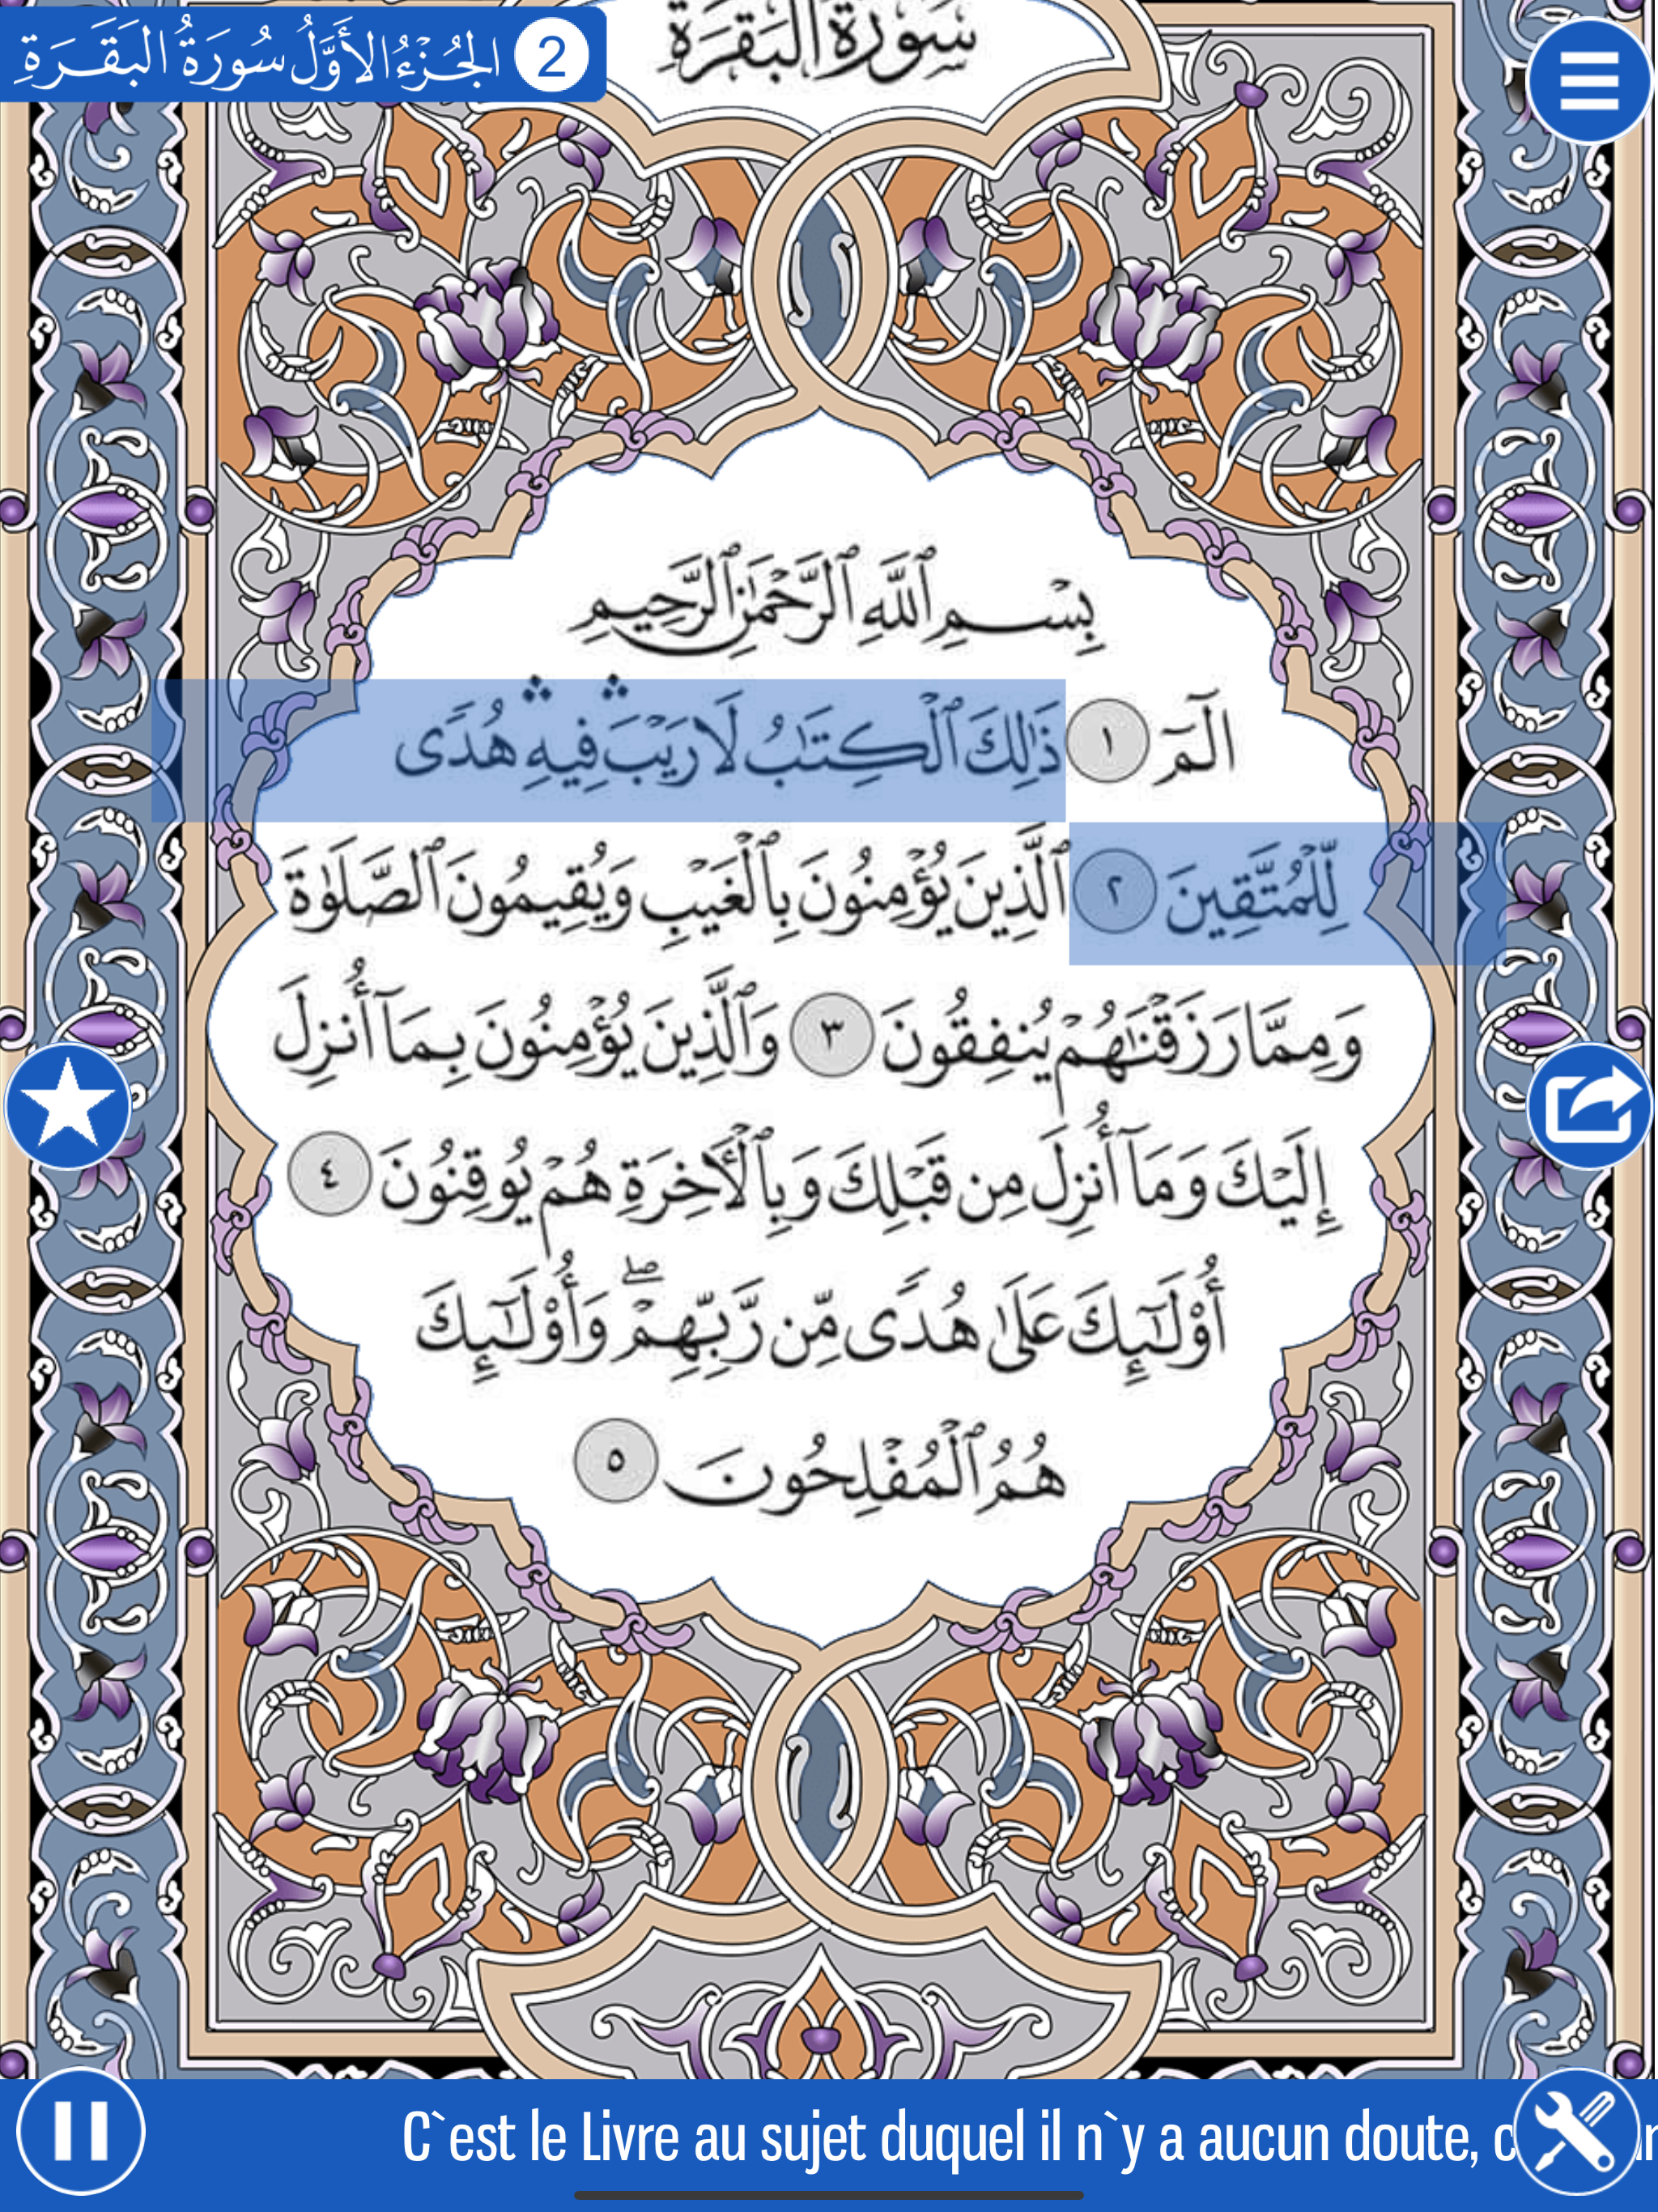 الجُزْءُ الأَوَّلُ سُورَةُ البَقَرَةِ 2
سُورَةُ البَقَرَةِ
بِسْمِ ٱللَّهِ ٱلرَّحْمَٰنِ ٱلرَّحِيمِ
الٓمٓ ١ ذَٰلِكَ ٱلْكِتَٰبُ لَا رَيْبَ ۛ فِيهِ ۛ هُدًى
لِّلْمُتَّقِينَ ٢ ٱلَّذِينَ يُؤْمِنُونَ بِٱلْغَيْبِ وَيُقِيمُونَ ٱلصَّلَوٰةَ
وَمِمَّا رَزَقْنَٰهُمْ يُنفِقُونَ ٣ وَٱلَّذِينَ يُؤْمِنُونَ بِمَآ أُنزِلَ
إِلَيْكَ وَمَآ أُنزِلَ مِن قَبْلِكَ وَبِٱلْأَخِرَةِ هُمْ يُوقِنُونَ ٤
أُوْلَٰٓئِكَ عَلَىٰ هُدًى مِّن رَّبِّهِمْ ۖ وَأُوْلَٰٓئِكَ
هُمُ ٱلْمُفْلِحُونَ ٥
C`est le Livre au sujet duquel il n`y a aucun doute,